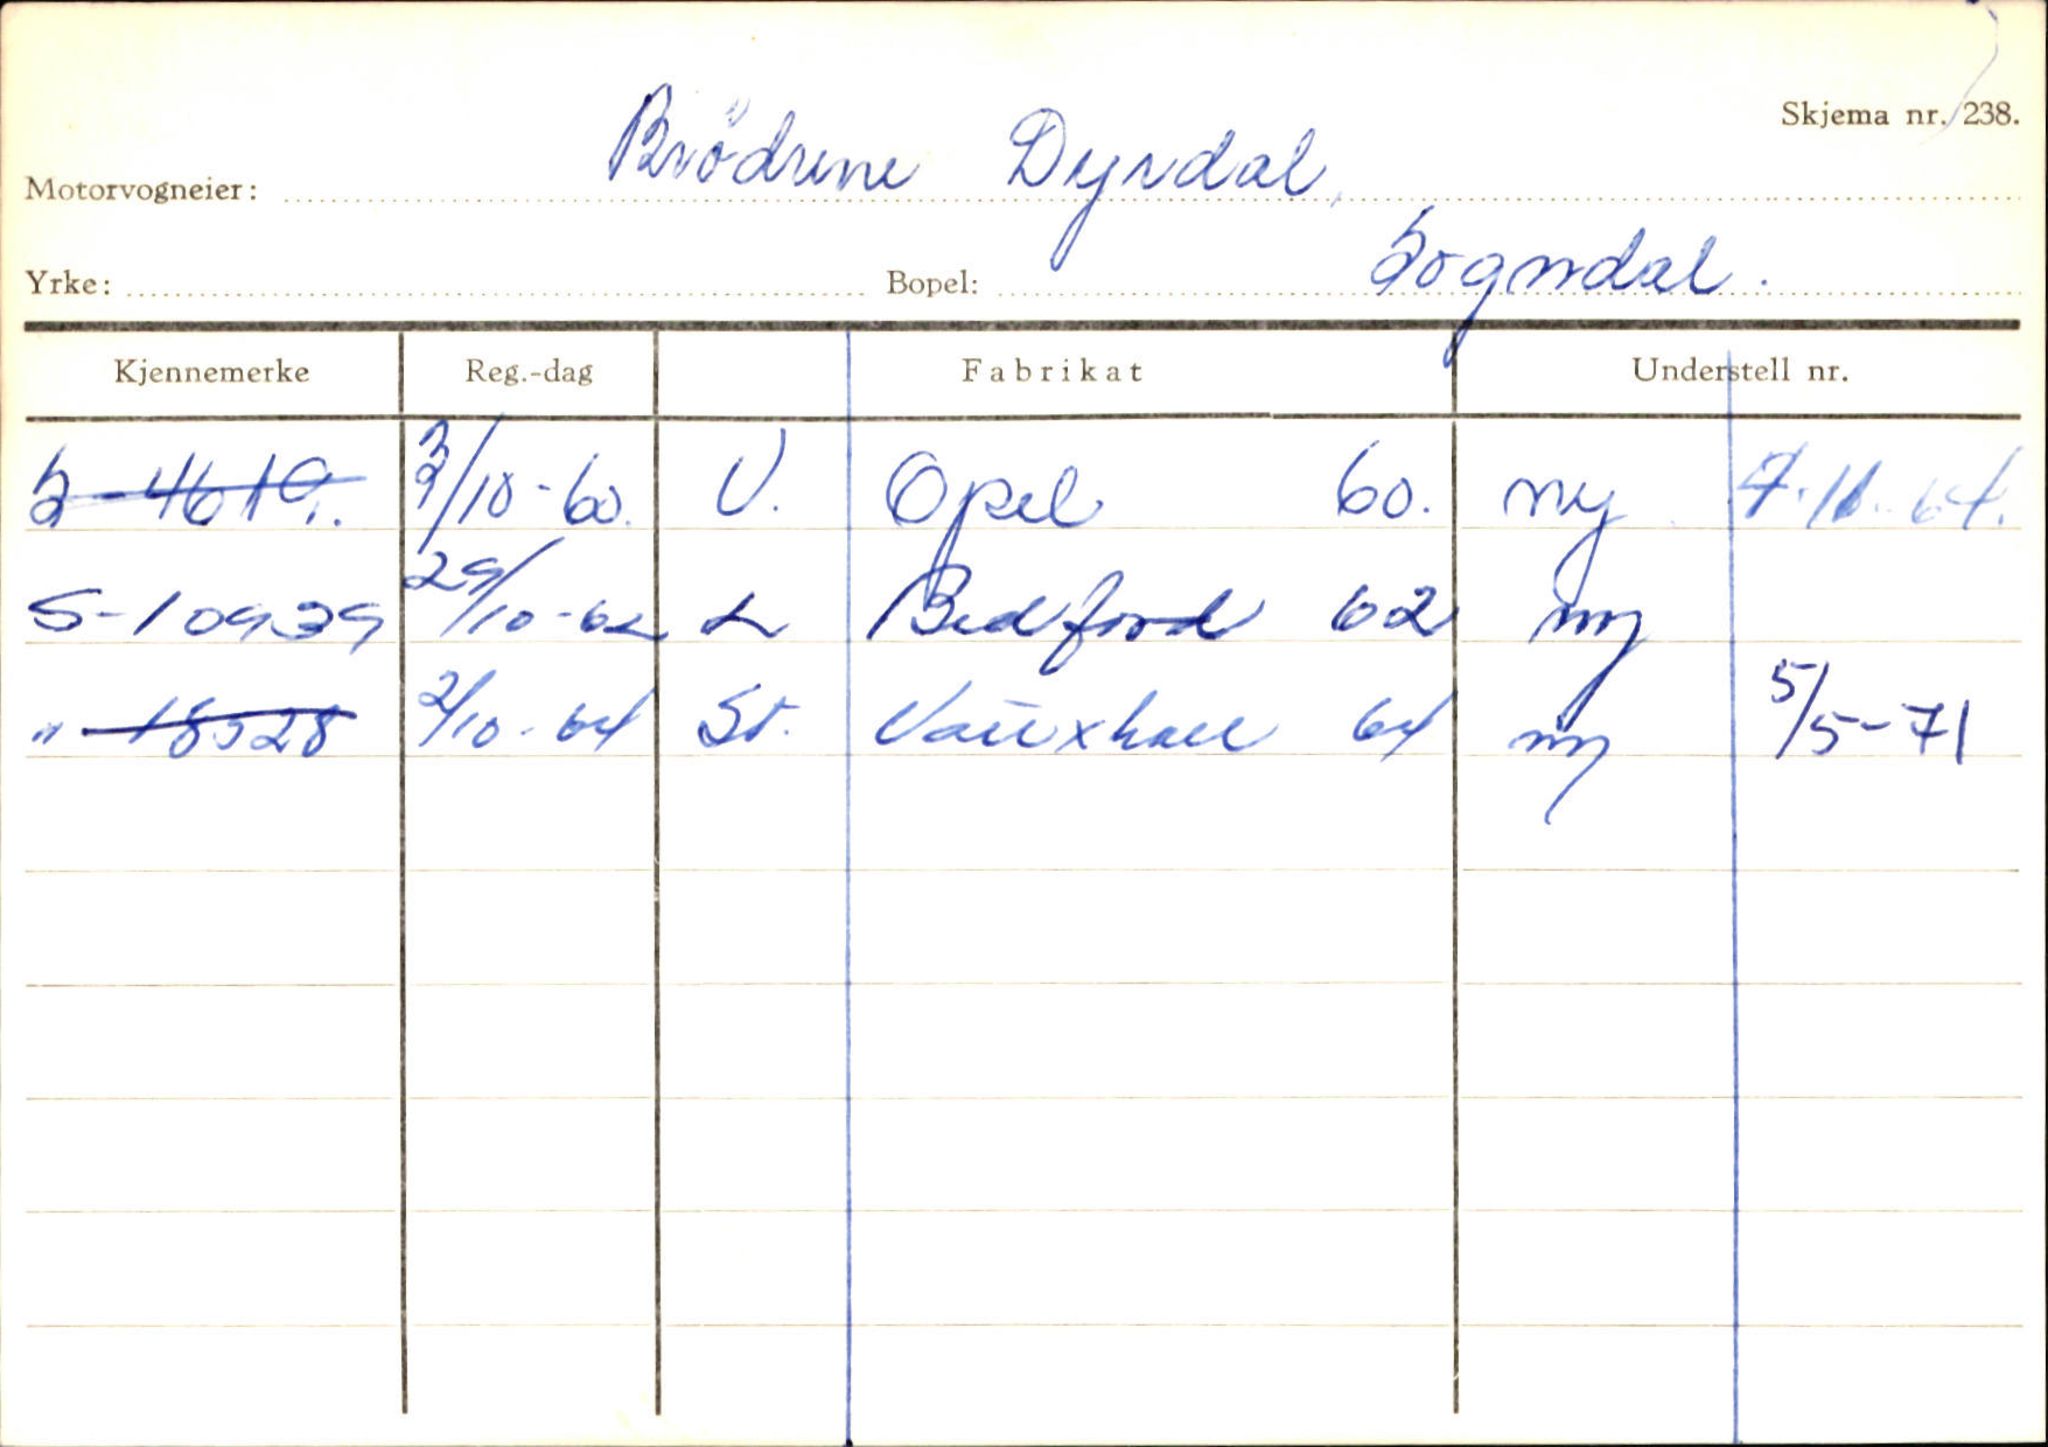 Skjema nr. 238.
Motorvogneier: Brödrene Dyrdal,
Yrke: Bopel: Sogndal.
Kjennemerke Reg.-dag Fabrikat Understell nr.
S-4619. /10-60. V. Opel 60. ny 7.11.64.
S-10939 29/10-62 L Bedford 62 ny
" - 18528 2/10-64 St. Vauxhall 64 ny 5/5-71